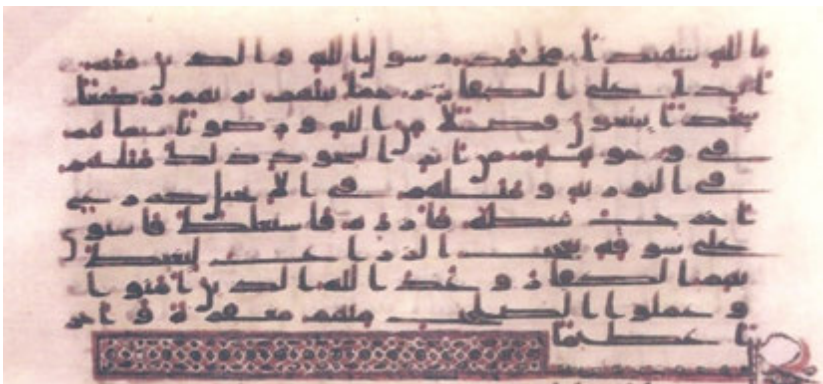 بالله شهيدا محمد رسول الله والذين معه
اشدا على الكفار رحما بينهم تريهم ركعا
سجدا يبتغون فضلا من الله ورضونا سيماهم
في وجوههم من اثر السجود ذلك مثلهم
في التورية ومثلهم في الانجيل كزرع
اخرج شطه فازره فاستغلظ فاستوى
على سوقه يعجب الزراع ليغيظ
بهم الكفار وعد الله الذين امنوا
وعملوا الصلحت منهم مغفرة واجر
ا عظيما